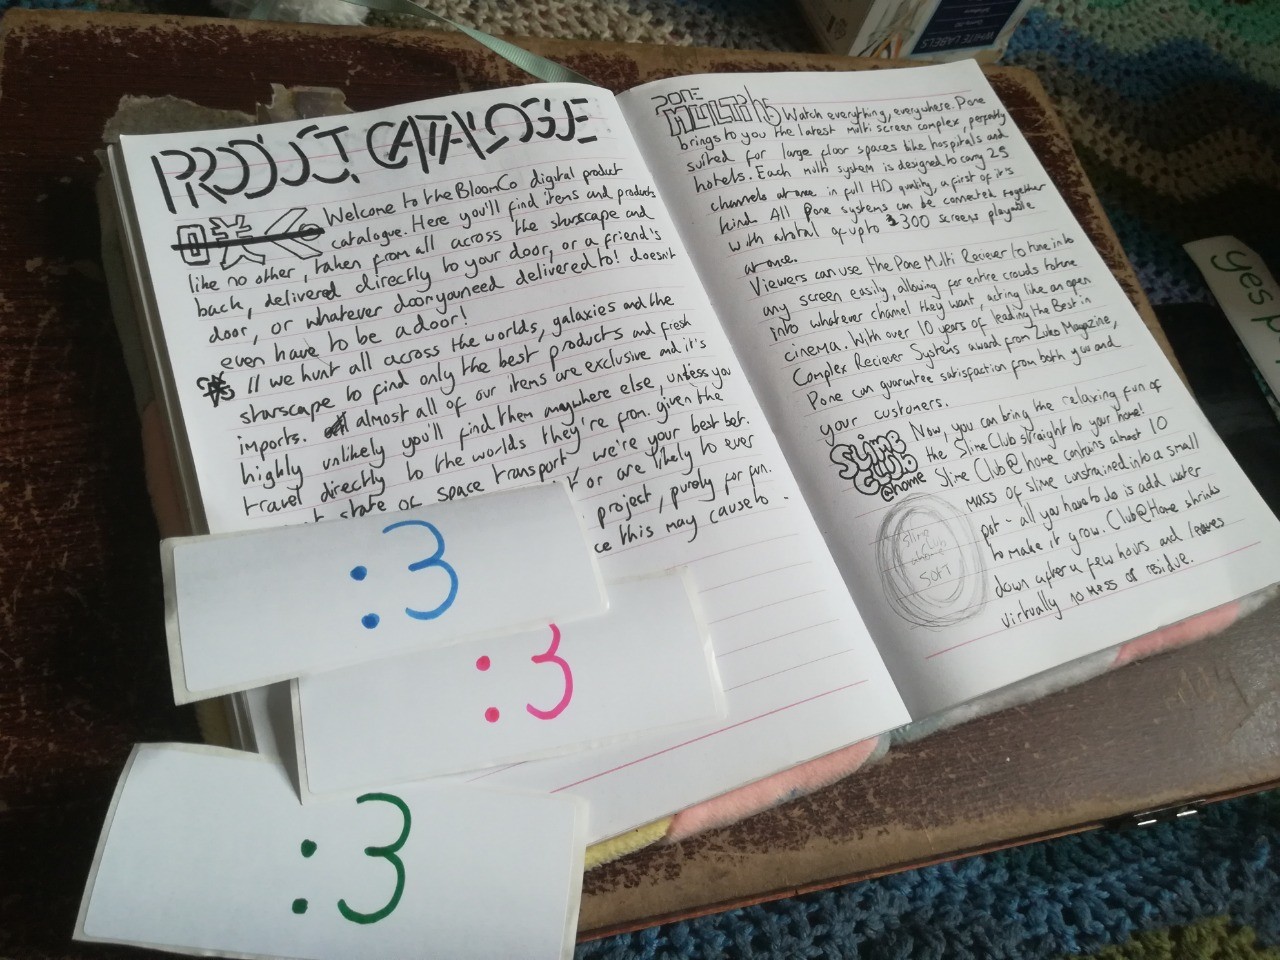 PRODUCT CATALOGUE
Welcome to the BloomCo digital product
catalogue. Here you'll find items and products
like no other, taken from all across the starscape and
back, delivered directly to your door, or a friend's
door, or whatever door you need delivered to! doesn't
even have to be a door!
// we hunt all across the worlds, galaxies and the
starscape to find only the best products and fresh
imports. almost all of our items are exclusive and it's
highly unlikely you'll find them anywhere else, unless you
travel directly to the worlds they're from. given the
state of space transport, we're your best bet.
or are likely to ever
project, purely for fun.
this may cause to
:3
:3
:3
PONE
MULTI
Watch everything, everywhere. Pone
brings to you the latest multi screen complex, perfectly
suited for large floor spaces like hospitals and
hotels. Each multi system is designed to carry 25
channels at once in full HD quality, a first of it's
kind. All Pone systems can be connected together
with a total of up to 300 screens playable
at once.
Viewers can use the Pone Multi Reciever to tune into
any screen easily, allowing for entire crowds to tune
into whatever channel they want, acting like an open
cinema. With over 10 years of leading the Best in
Complex Reciever Systems award from Luko Magazine,
Pone can guarantee satisfaction from both you and
your customers.
SLIME
CLUB
@home
Now, you can bring the relaxing fun of
the Slime Club straight to your home!
Slime Club@home contains almost 10
mass of slime constrained into a small
pot - all you have to do is add water
to make it grow. Club@Home shrinks
down after a few hours and leaves
virtually no mess or residue.
Slime Club
@home
SORT
WHITE LABELS
yes